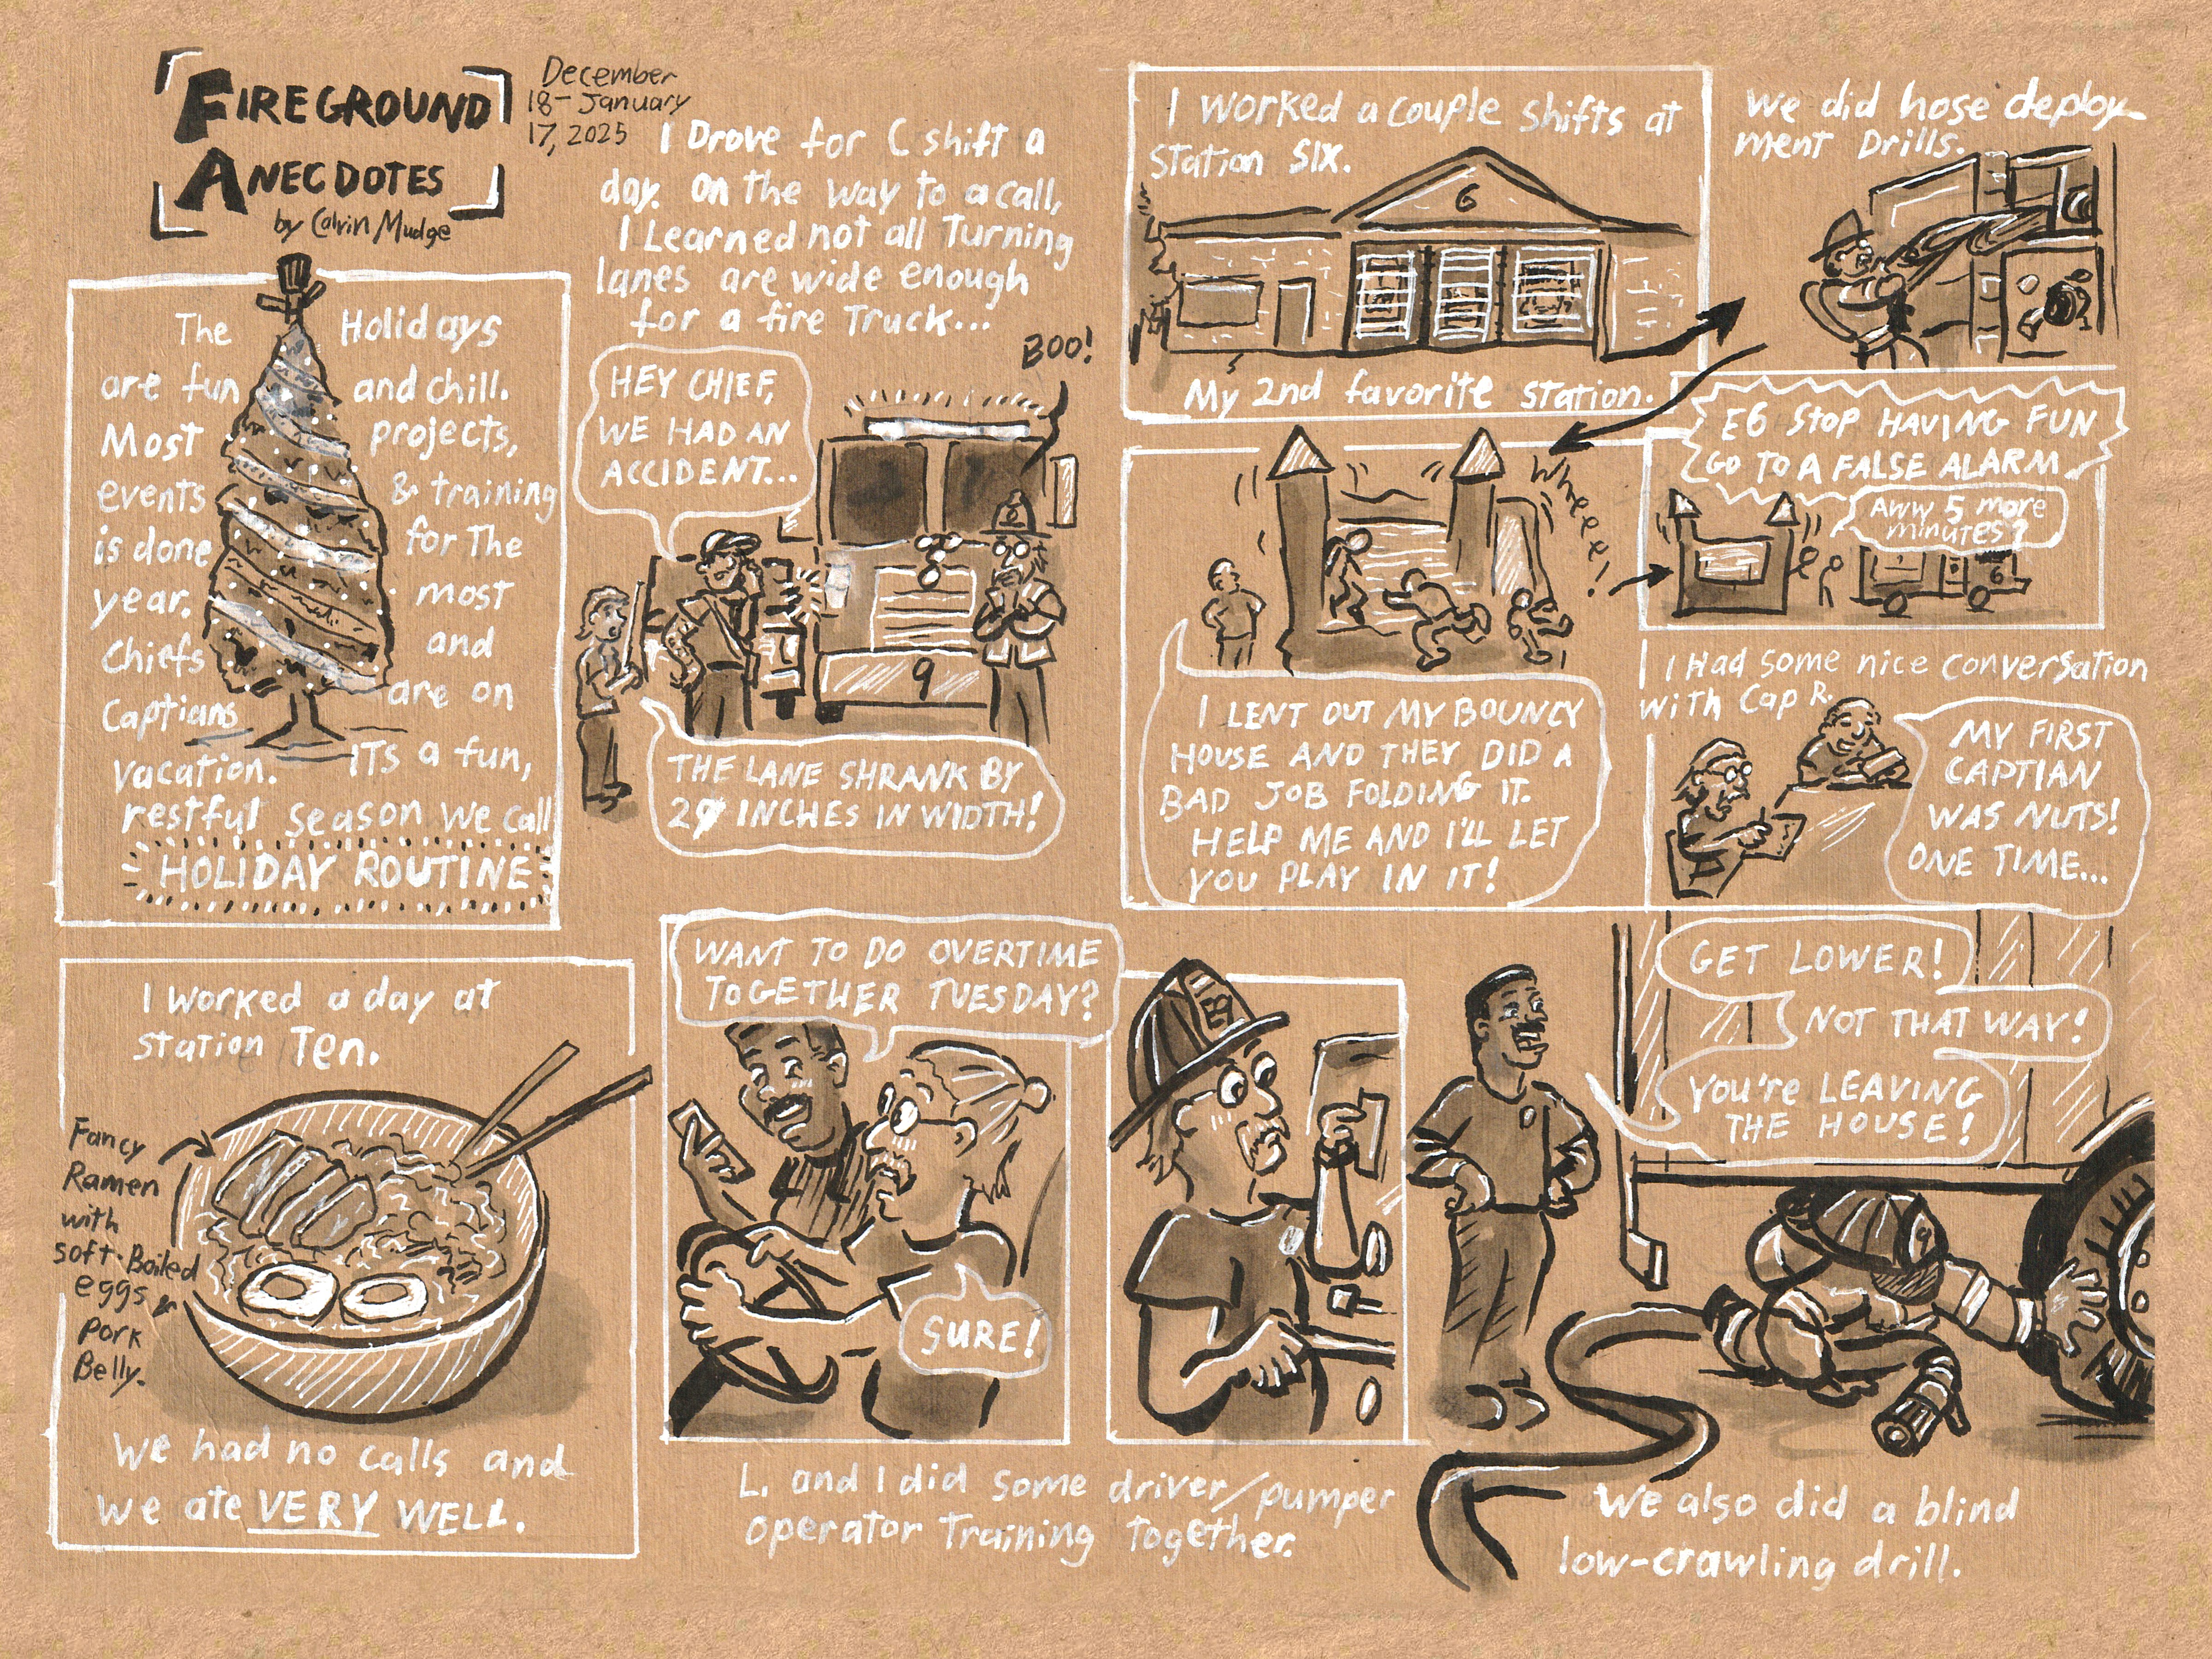 FIREGROUND
ANECDOTES
by Calvin Mudge
December
18-January
17, 2025
The Holidays
are fun and chill.
Most projects,
events & training
is done for The
year. most
Chiefs and
Captians are on
vacation. ITs a fun,
restful season we call
HOLIDAY ROUTINE
I Drove for C shift a
day. On the way to a call,
I Learned not all Turning
lanes are wide enough
for a fire Truck...
BOO!
HEY CHIEF,
WE HAD AN
ACCIDENT...
9
THE LANE SHRANK BY
29 INCHES IN WIDTH!
I worked a couple shifts at
Station SIX.
6
My 2nd favorite station.
We did hose deploy-
ment Drills.
Wheeee!
I LENT OUT MY BOUNCY
HOUSE AND THEY DID A
BAD JOB FOLDING IT.
HELP ME AND I'LL LET
YOU PLAY IN IT!
E6 STOP HAVING FUN
GO TO A FALSE ALARM
AWW 5 more
minutes?
6
I Had some nice conversation
with Cap R.
MY FIRST
CAPTIAN
WAS NUTS!
ONE TIME...
I worked a day at
station Ten.
Fancy
Ramen
with
soft-Boiled
eggs &
Pork
Belly.
We had no calls and
we ate VERY WELL.
WANT TO DO OVERTIME
TOGETHER TUESDAY?
SURE!
E9
L. and I did some driver/pumper
operator Training together.
GET LOWER!
NOT THAT WAY!
YOU'RE LEAVING
THE HOUSE!
9
We also did a blind
low-crawling drill.